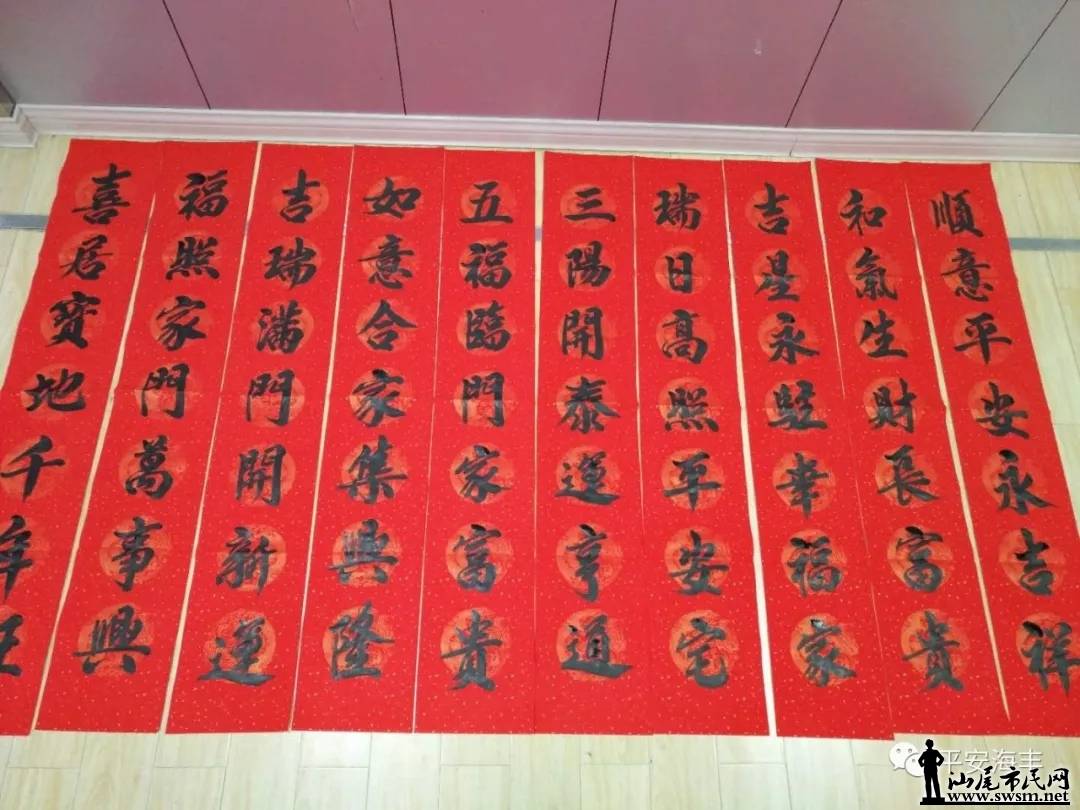 順意平安永吉祥
和氣生財長富貴
吉星永駐幸福家
瑞日高照平安宅
三陽開泰運亨通
五福臨門家富貴
如意合家集興隆
吉瑞滿門開新運
福照家門萬事興
喜居寶地千年旺
平安海丰
汕尾市民网
www.swsm.net